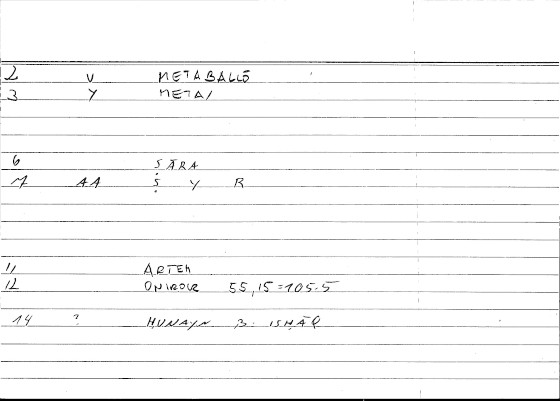 2 V METABALLŌ
3 Y META/
6 ṢĀRA
7 AA Ṣ Y R
11 ARTEM
12 ONIROCR 55,15=105.5
14 ? ḤUNAYN B. ISḤĀQ